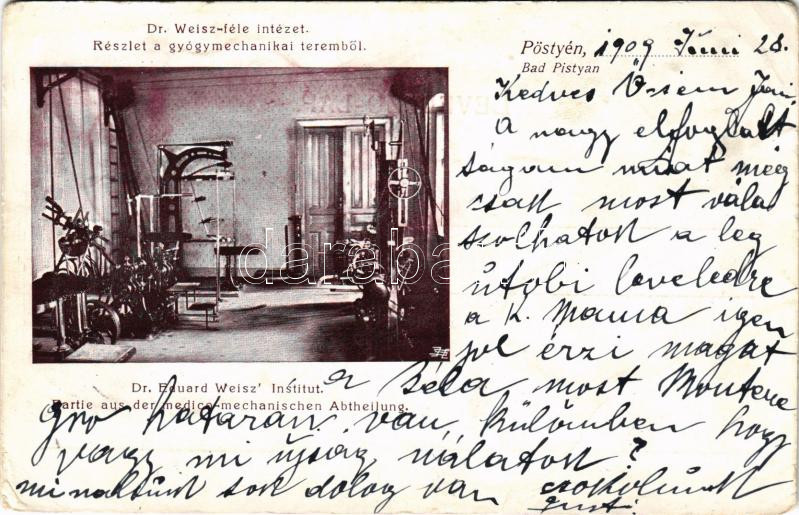 Dr. Weisz-féle intézet.
Részlet a gyógymechanikai teremből.
Pöstyén, 1909 Juni 28.
Bad Pistyan
Kedves Öcsém Jani
A nagy elfoglalt
ságam miat még
csak most vála
szolhatok a leg
útobi leveledre
a k. Mama igen
jol érzi magát
a Béla most Montene
gro határán van, külömben hogy
vagy mi újság nálatok?
minálunk sok dolog van csokolunk
Guszti
Dr. Eduard Weisz' Institut.
Partie aus der medico-mechanischen Abtheilung.
darabanth